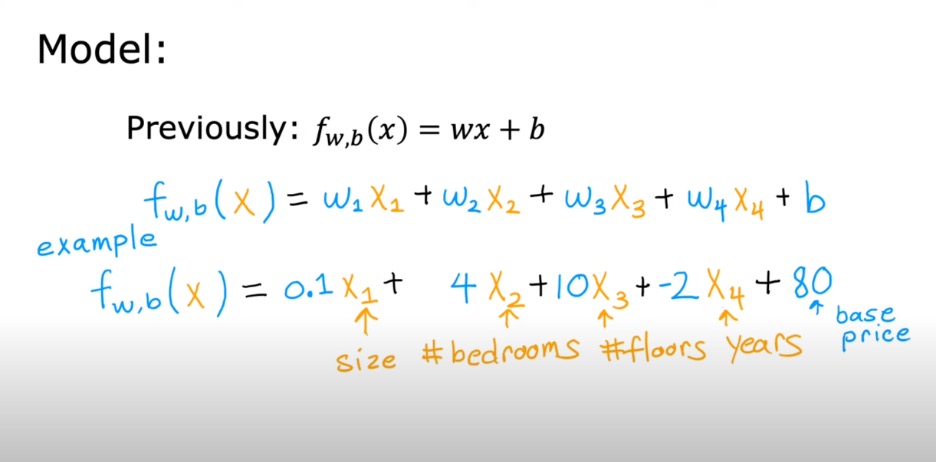 Model:
Previously: f_{w,b}(x) = wx + b
f_{w,b}(x) = w₁x₁ + w₂x₂ + w₃x₃ + w₄x₄ + b
example
f_{w,b}(x) = 0.1x₁ + 4x₂ + 10x₃ + -2x₄ + 80
size #bedrooms #floors years
base
price